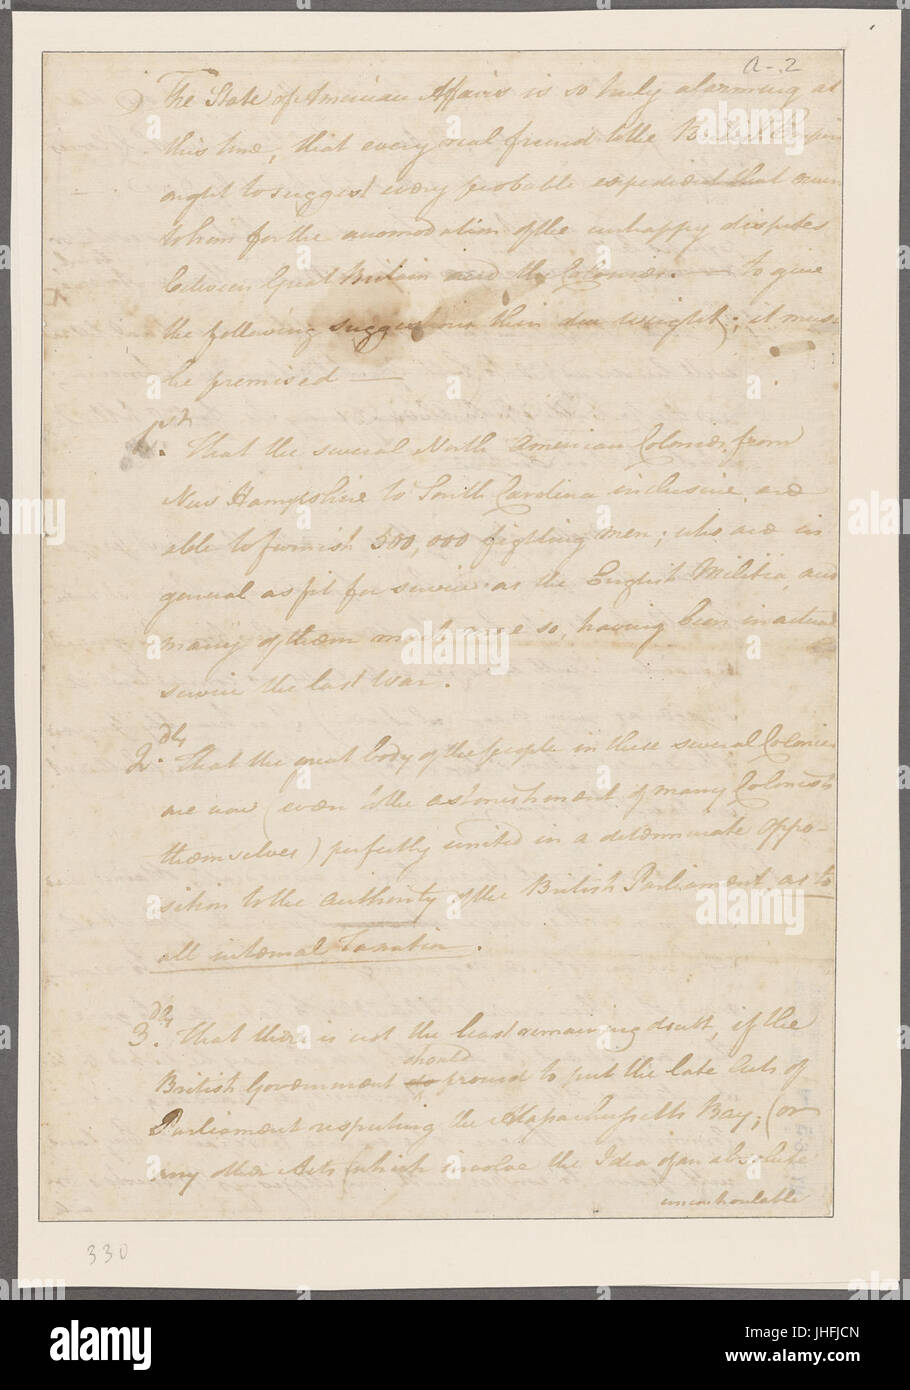 a-.2
The State of American Affairs is so truly alarming at
this time, that every real friend to the British Empire
ought to suggest every probable expedient that occurs
to him for the accomodation of the unhappy disputes
between Great Britain and the Colonies. — To give
the following suggestions their due weight; it must
be premised —
1st. That the several North American Colonies from
New Hampshire to South Carolina inclusive are
able to furnish 500,000 fighting men; who are in
general as fit for service as the English Militia, and
many of them much more so, having been in actual
service the last War.
2dly. That the great body of the people in these several Colonies
are now (even to the astonishment of many Colonists
themselves) perfectly united in a determinate Oppo-
sition to the authority of the British Parliament, as to
all internal Taxation.
3dly. That there is not the least remaining doubt, if the
should
British Government do proceed to put the late Acts of
Parliament respecting the Massachusetts Bay; (or
any other Acts which involve the Idea of an absolute
uncontroulable
330
alamy
alamy stock photo
JHFJCN
www.alamy.com